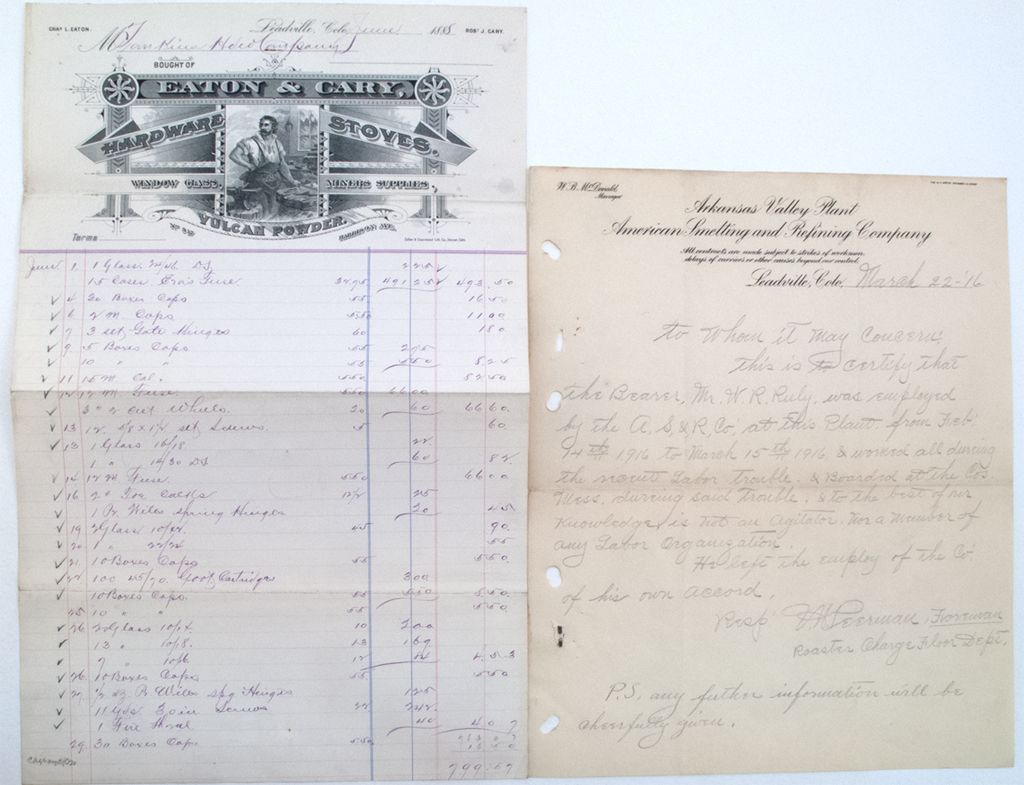 CHAS. L. EATON.
Leadville, Colo. June 1888
ROBT J. CARY.
Company
BOUGHT OF
EATON & CARY,
HARDWARE
STOVES.
WINDOW GLASS,
MINERS SUPPLIES,
VULCAN POWDER.
HARRISON AVE.
Terms
June 1. 1 Glass D.S. 225
15 Cases Fuse 3275 49125 493.50
4 30 Boxes Caps 55 16 50
6 2 M. Caps 5.50 11 00
7 3 set Gate Hinges 60 1 80
9 5 Boxes Caps 275
10 " " 55 550 8 25
11 15 M. Cal. 550 82 50
12 12 M. Fuse 550 6600
3 " 2 cut Wheels. 20 60 66 60.
13 12 5/8 x 1 1/4 set Screws. 5 60.
13 1 Glass 10/18. 22
1 " 14/30 DS 60 82
14 12 M Fuse. 550 66 00
16 2 Toe Calks 12 1/2 25
1 Pr. Wiles Spring Hinges 20 45
19 2 Glass 10/24. 45 90.
20 1 " 22/24 55
21. 10 Boxes Caps 55 5 50.
22 100 45/70. Govt Cartridges 300
10 Boxes Caps. 55 550
25 10 " " 55 5 50.
26 20 Glass 10/14. 10 200
13 " 10/18. 13 169
7 " 10/16 12 84 4.53
26. 10 Boxes Caps 55 5 50
27. 1/2 Pr Wiles Spg Hinges 125
11 Screws 22 242
1 40 4 07
29. 30 Boxes Caps 550
799.67
W. B. McDonald,
Manager
Arkansas Valley Plant
American Smelting and Refining Company
All contracts are made subject to strikes of workmen,
delays of carriers or other causes beyond our control.
Leadville, Colo, March 22-'16
to Whom it May Concern:
this is to certify that
the Bearer, Mr. W. R. Ruly, was employed
by the A. S. & R. Co. at this Plant. from Feb.
14th 1916 to March 15th 1916, & worked all during
the recent Labor trouble. & Boarded at the Co's.
Mess, during said trouble. & to the best of my
Knowledge, is not an agitator, nor a member of
any Labor Organization.
He left the employ of the Co.
of his own accord.
Resp Peerman, Foreman
Roaster Charge Floor Dept.
P.S. any further information will be
cheerfully given.